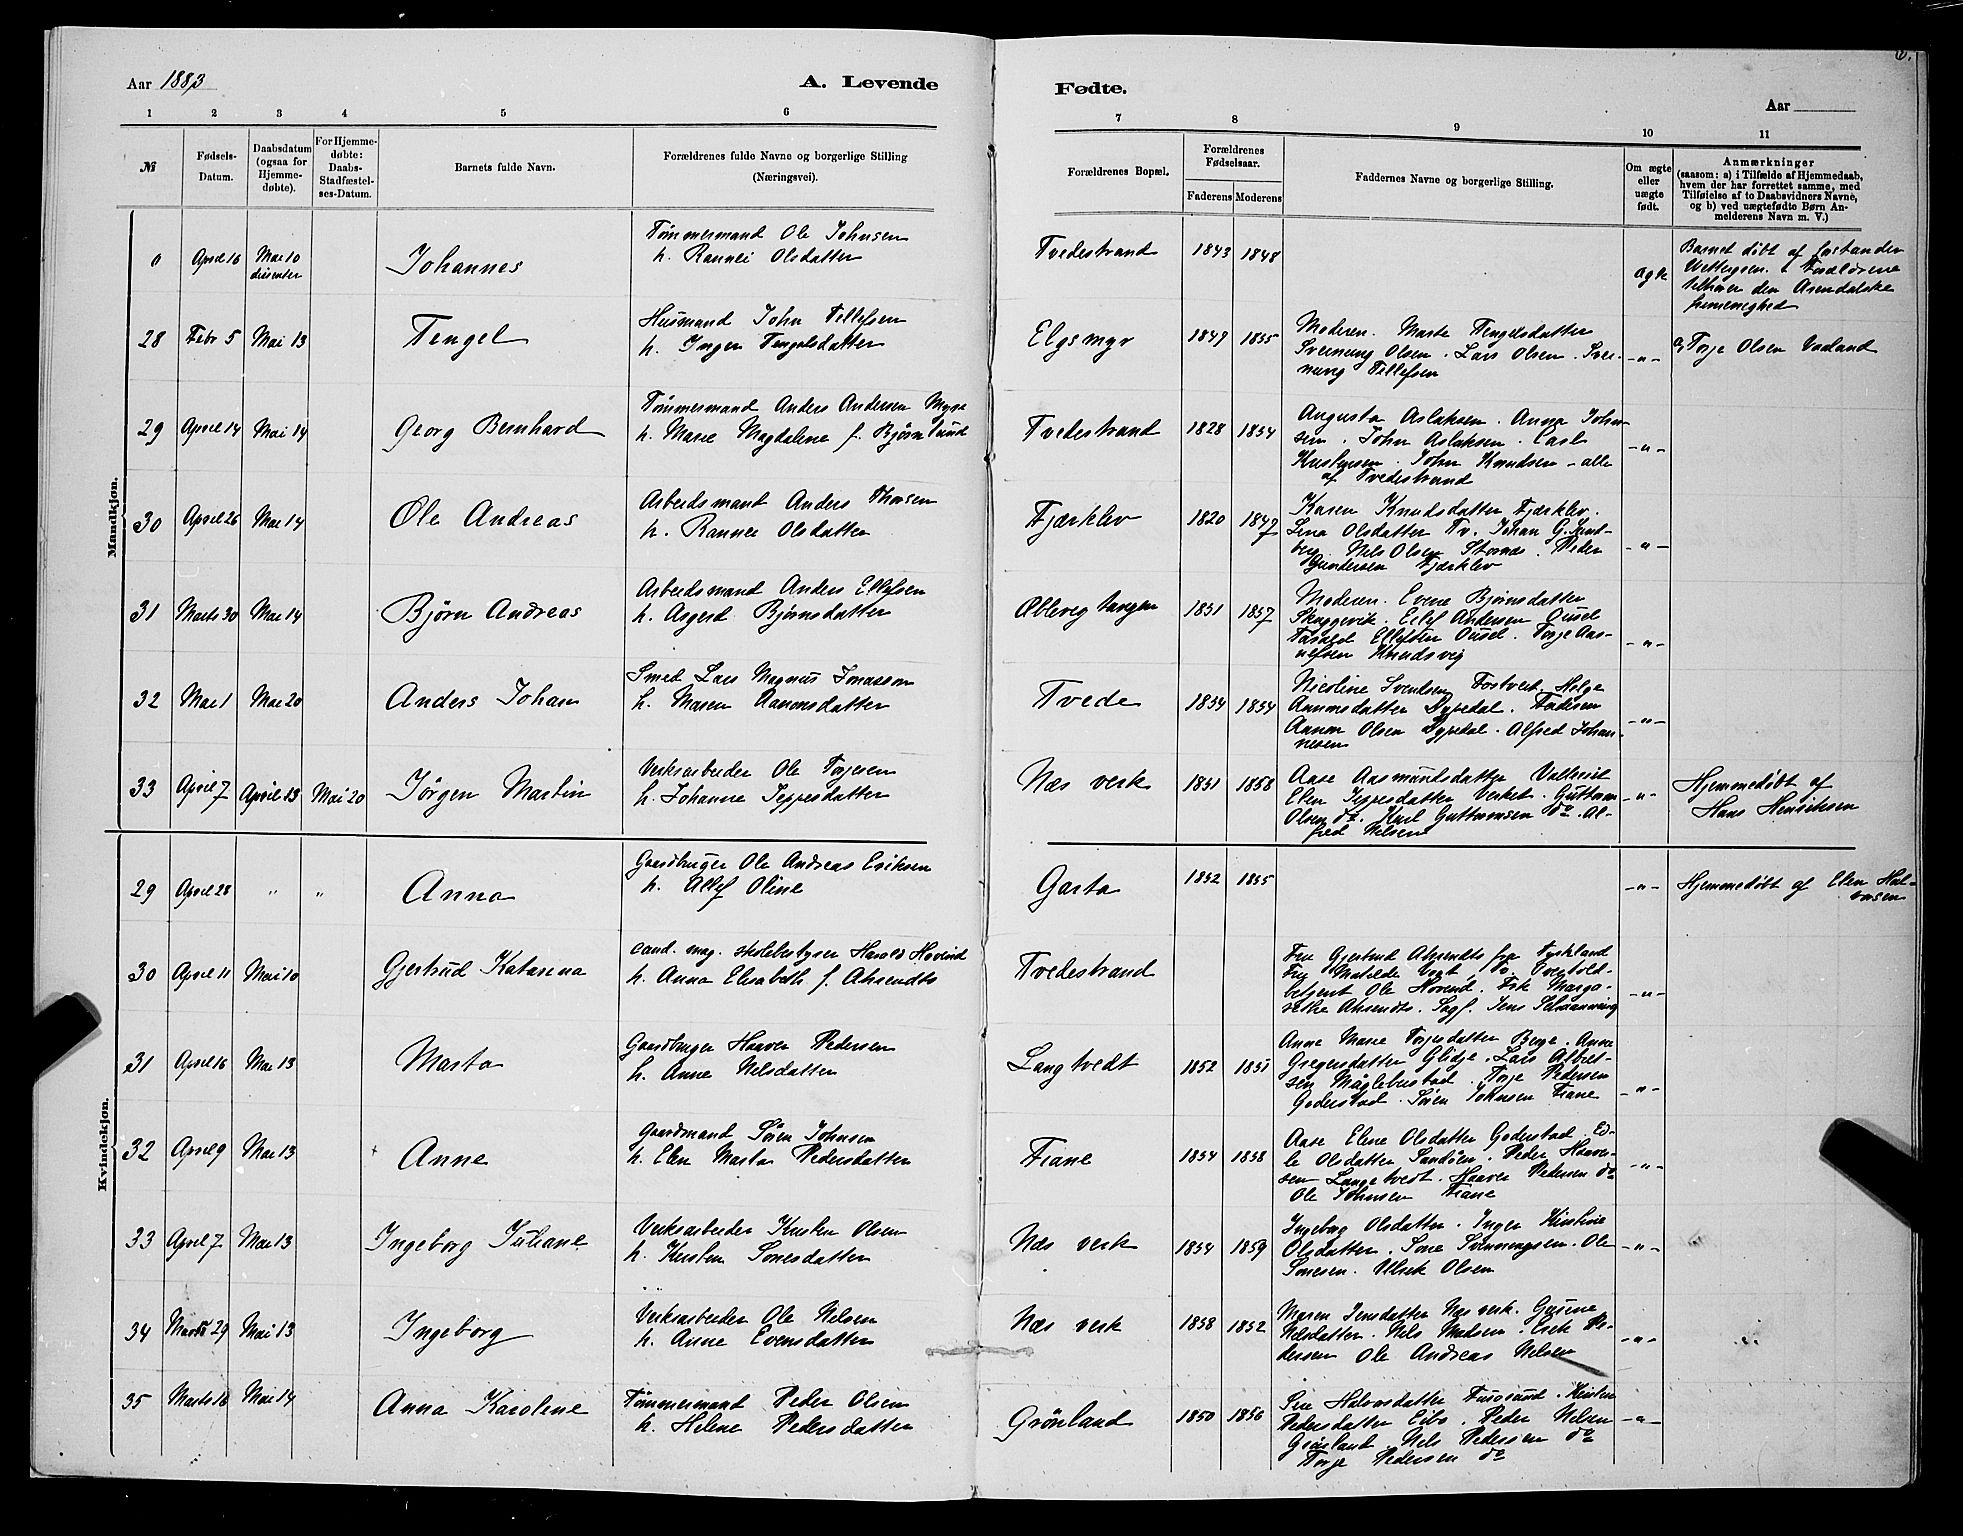 Aar 1883
A. Levende
Fødte.
Aar
1 2 3 4 5 6 7 8 9 10 11
№
Fødsels-Datum.
Daabsdatum (ogsaa for Hjemmedøbte).
For Hjemmedøbte: Daabs-Stadfæstelses-Datum.
Barnets fulde Navn.
Forældrenes fulde Navne og borgerlige Stilling (Næringsvei).
Forældrenes Bopæl.
Forældrenes Fødselsaar.
Faderens Moderens
Faddernes Navne og borgerlige Stilling.
Om ægte eller uægte født.
Anmærkninger
(saasom: a) i Tilfælde af Hjemmedaab, hvem der har forrettet samme, med Tilføielse af to Daabsvidners Navne, og b) ved uægtefødte Børn Anmelderens Navn m. V.)
Mandkjøn.
0 April 16 Mai 10 dissenter Johannes
Tømmermand Ole Johnsen
h. Rannei Olsdatter
Tvedestrand 1843 1848 ægte
Barnet døbt af forstander
Wettergsen. Forældrene
tilhører den Arendalske
frimenighed
28 Febr 5 Mai 13 Tengel
Husmand John Tellefsen
h. Inger Tengelsdatter
Elgsmyr 1849 1855
Moderen. Marte Tengelsdatter
Svenung Olsen. Lars Olsen. Sve-
nung Tellefsen
-"- Torje Olsen Valand
29 April 14 Mai 14 Georg Bernhard
Tømmermand Anders Andersen Myra
h. Marie Magdalene f. Bjørnlund
Tvedestrand 1828 1854
Augusta Aslaksen. Anna John-
sen. John Aslaksen. Carl
Kristensen. John Knudsen - alle
af Tvedestrand
-"-
30 April 26 Mai 14 Ole Andreas
Arbeidsmand Anders Thorsen
h. Rannei Olsdatter
Fjærklev 1820 1847
Karen Knudsdatter Fjærklev.
Lena Olsdatter Tv. Johan G. Lind-
berg. Nils Olsen Stornæs. Peder
Gundersen Fjærklev
-"-
31 Marts 30 Mai 14 Bjørn Andreas
Arbeidsmand Anders Ellefsen
h. Asgerd Bjørnsdatter
Æblevig tangen 1851 1857
Moderen. Evine Bjørnsdatter
Skuggevik. Ellef Andersen Ousel
Tarald Ellefsen Ousel. Torje Aas-
ulfsen Knudsvig
-"-
32 Mai 1 Mai 20 Anders Johan
Smed Lars Magnus Jonasson
h. Maren Aanonsdatter
Tvede 1854 1854
Nicoline Svendsen Fostveit. Helge
Aanonsdatter Dypedal. Faderen
Aanon Olsen Dypedal. Alfred Johan-
nesen
-"-
33 April 7 April 13 Mai 20 Jörgen Martin
Verksarbeider Ole Torjesen
h. Johanne Jeppesdatter
Næs verk 1851 1858
Aase Aasmundsdatter Valteveit
Elen Jeppesdatter Verket. Guttorm
Olsen do. Karl Guttormsen do. Al-
fred Nilsen
-"- Hjemmedøbt af
Hans Henriksen
Kvindekjøn.
29 April 28 " " Anna
Gaardbruger Ole Andreas Eriksen
h. Ellef Oline
Garta 1852 1855 -"-
Hjemmedøbt af Elen Hal-
vorsen
30 April 11 Mai 10 Gjertrud Katarina
cand. mag. skolebestyrer Harald Hovind
h. Anna Elisabeth f. Ahrendts
Tvedestrand
Fru Gjertrud Ahrendts fra Tyskland
Frk Matilde Vogt, Tv. Overtold-
betjent Ole Hovind. Frk Marga-
rethe Ahrendts. Sagf. Jens Schaanning
-"-
31 April 16 Mai 13 Marta
Gaardbruger Haaver Pedersen
h. Anne Nilsdatter
Langtvedt 1852 1851
Anne Marie Torjesdatter Berge. Anne
Gregersdatter Glidje. Lars Albret-
sen Måglebustad. Torje Pedersen
Goderstad. Søren Johnsen Fiane
-"-
32 April 9 Mai 13 Anne
Gaardmand Søren Johnsen
h. Elen Marta Pedersdatter
Fiane 1854 1858
Aase Elene Olsdatter Goderstad. Ed-
le Olsdatter Sandøen. Peder Haaver-
sen Langetvedt. Haaver Pedersen do
Ole Johnsen Fiane
-"-
33 April 7 Mai 13 Ingeborg Juliane
Verksarbeider Kristen Olsen
h. Kirsten Sonesdatter
Næs verk 1854 1859
Ingeborg Olsdatter. Inger Kirstine
Olsdatter. Sone Svenningsen. Ole
Sonesen. Ulrik Olsen
-"-
34 Marts 29 Mai 13 Ingeborg
Verksarbeider Ole Nilsen
h. Anne Evensdatter
Næs verk 1858 1852
Maren Jensdatter Næs verk. Gusine
Nilsdatter. Nils Madsen. Erik Pe-
dersen Ole Andreas Nilsen
-"-
35 Marts 16 Mai 14 Anna Karoline
Tømmermand Peder Olsen
h. Helene Pedersdatter
Grønland 1850 1856
Siri Halvorsdatter Furøsund. Kirsten
Pedersdatter Eibo. Peder Nilsen
Grønland. Nils Pedersen do
Torje Pedersen do
-"-